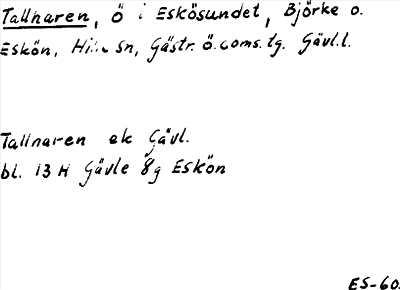 Tallnaren, ö i Eskösundet, Björke o.
Eskön, Hille sn, Gästr. ö. doms. tg. Gävl.l.
Tallnaren ek Gävl.
bl. 13 H Gävle 8g Eskön
ES-60.